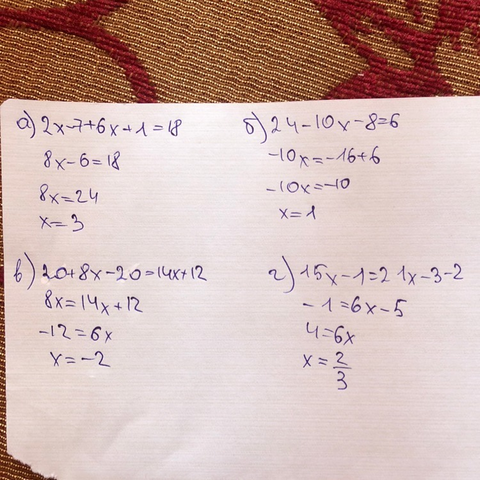 а) 2x-7+6x+1=18
8x-6=18
8x=24
x=3
б) 24-10x-8=6
-10x=-16+6
-10x=-10
x=1
в) 20+8x-20=14x+12
8x=14x+12
-12=6x
x=-2
г) 15x-1=21x-3-2
-1=6x-5
4=6x
x=2/3